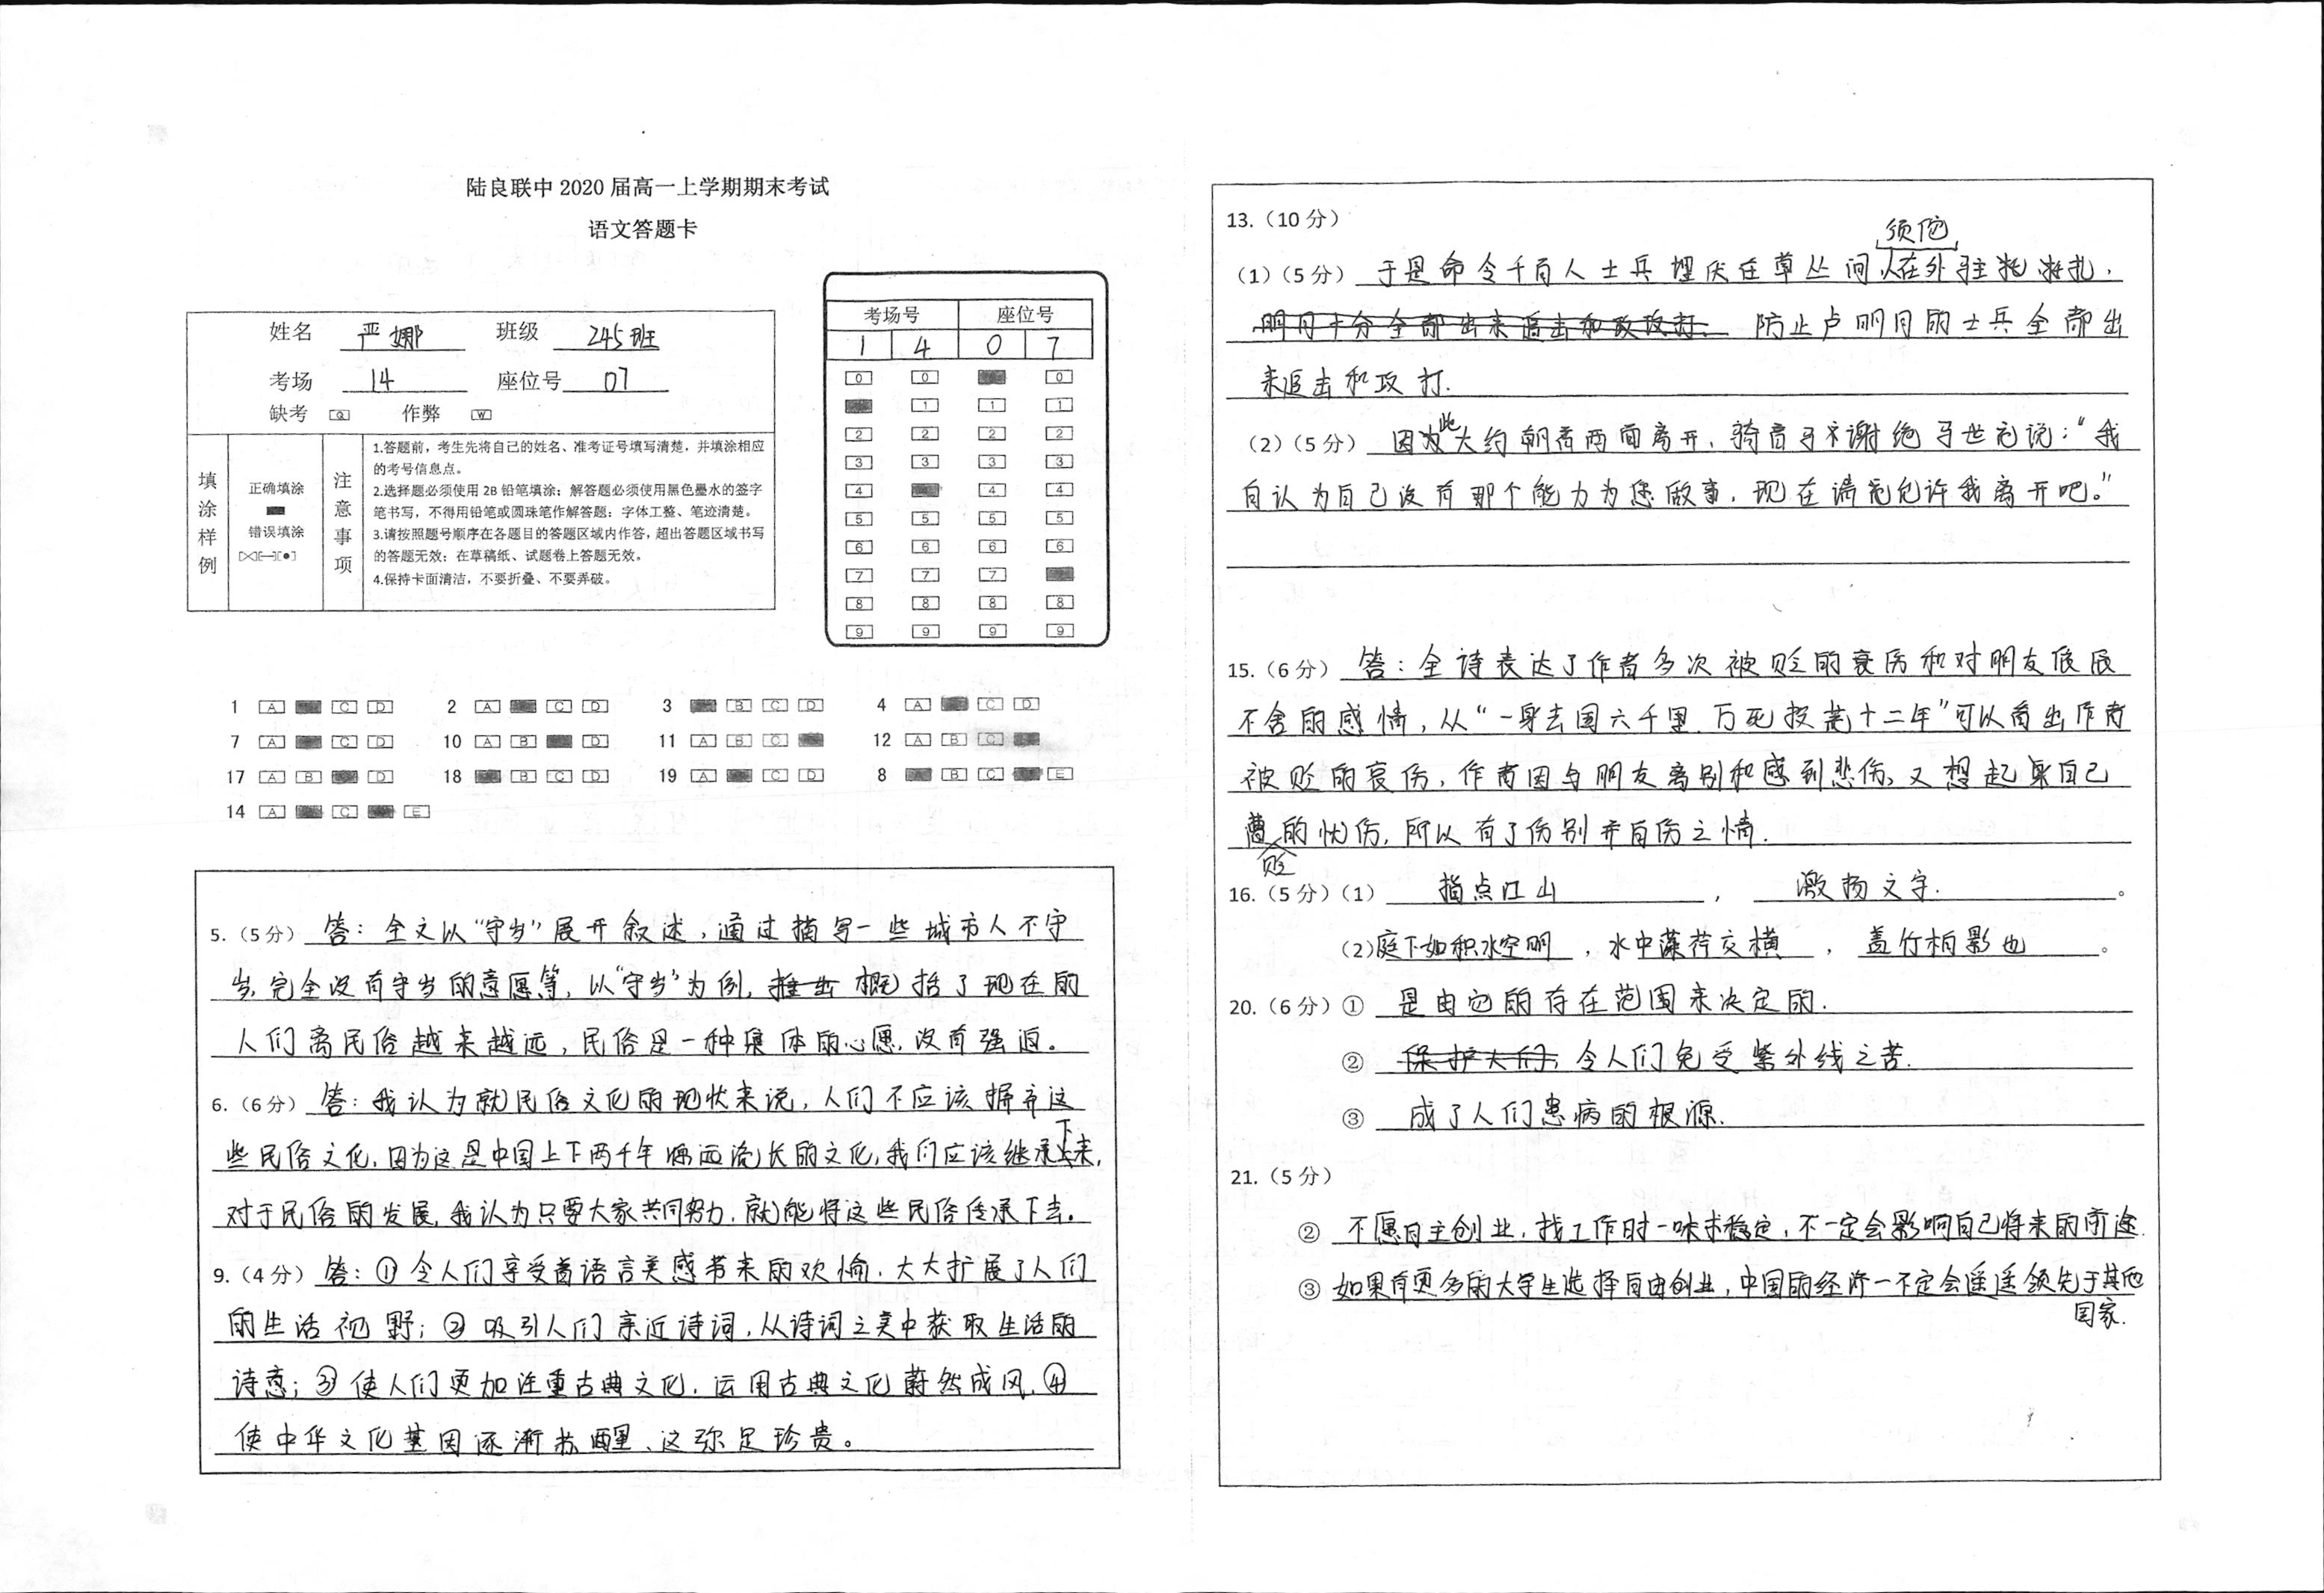 陆良联中 2020 届高一上学期期末考试
语文答题卡
姓名 严娜 班级 245班
考场 14 座位号 07
缺考 [Q] 作弊 [W]
填涂样例
正确填涂
错误填涂
注意事项
1.答题前，考生先将自己的姓名、准考证号填写清楚，并填涂相应
的考号信息点。
2.选择题必须使用 2B 铅笔填涂；解答题必须使用黑色墨水的签字
笔书写，不得用铅笔或圆珠笔作解答题；字体工整、笔迹清楚。
3.请按照题号顺序在各题目的答题区域内作答，超出答题区域书写
的答题无效；在草稿纸、试题卷上答题无效。
4.保持卡面清洁，不要折叠、不要弄破。
考场号 座位号
1 4 0 7
0 0 0
1 1 1
2 2 2 2
3 3 3 3
4 4 4
5 5 5 5
6 6 6 6
7 7 7
8 8 8 8
9 9 9 9
1 A C D 2 A C D 3 B C D 4 A C D
7 A C D 10 A B D 11 A B C 12 A B C
17 A B D 18 B C D 19 A C D 8 B C E
14 A C E
5.（5 分）答：全文以“守岁”展开叙述，通过描写一些城市人不守
岁，完全没有守岁的意愿等，以“守岁”为例，概括了现在的
人们离民俗越来越远，民俗是一种集体的心愿，没有强迫。
6.（6 分）答：我认为就民俗文化的现状来说，人们不应该摒弃这
些民俗文化，因为这是中国上下两千年源远流长的文化，我们应该继承下来，
对于民俗的发展，我认为只要大家共同努力，就能将这些民俗传承下去。
9.（4 分）答：①令人们享受着语言美感带来的欢愉，大大扩展了人们
的生活视野；②吸引人们亲近诗词，从诗词之美中获取生活的
诗意；③使人们更加注重古典文化，运用古典文化蔚然成风，④
使中华文化基因逐渐苏醒、这弥足珍贵。
13.（10 分）
须陀
（1）（5 分）于是命令千百人士兵埋伏在草丛间，人在外驻扎，
防止卢明月的士兵全部出
来追击和攻打.
（2）（5 分）因此大约朝着西面离开，骑着马不谢绝马世充说：“我
自认为自己没有那个能力为您做事，现在请您允许我离开吧。”
15.（6 分）答：全诗表达了作者多次被贬的哀伤和对朋友依依
不舍的感情，从“一身去国六千里，万死投荒十二年”可以看出作者
被贬的哀伤，作者因与朋友离别和感到悲伤，又想起自己
遭贬的忧伤，所以有了伤别并自伤之情.
16.（5 分）（1） 指点江山 ， 激扬文字. 。
（2）庭下如积水空明 ，水中藻荇交横 ， 盖竹柏影也 。
20.（6 分）① 是由它的存在范围来决定的.
② 令人们免受紫外线之苦.
③ 成了人们患病的根源.
21.（5 分）
② 不愿自主创业，找工作时一味求稳定，不一定会影响自己将来的前途.
③ 如果有更多的大学生选择自由创业，中国的经济一不定会遥遥领先于其他
国家.